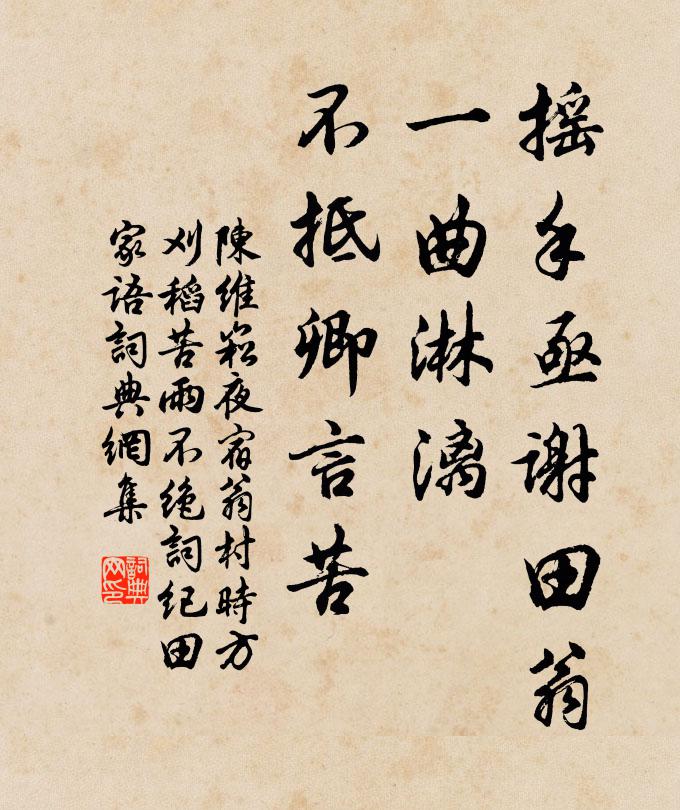 摇手亟谢田翁
一曲淋漓
不抵卿言苦
陳維崧夜宿翁村時方
刈稻苦雨不绝詞纪田
家语詞典網集
詞典
网印